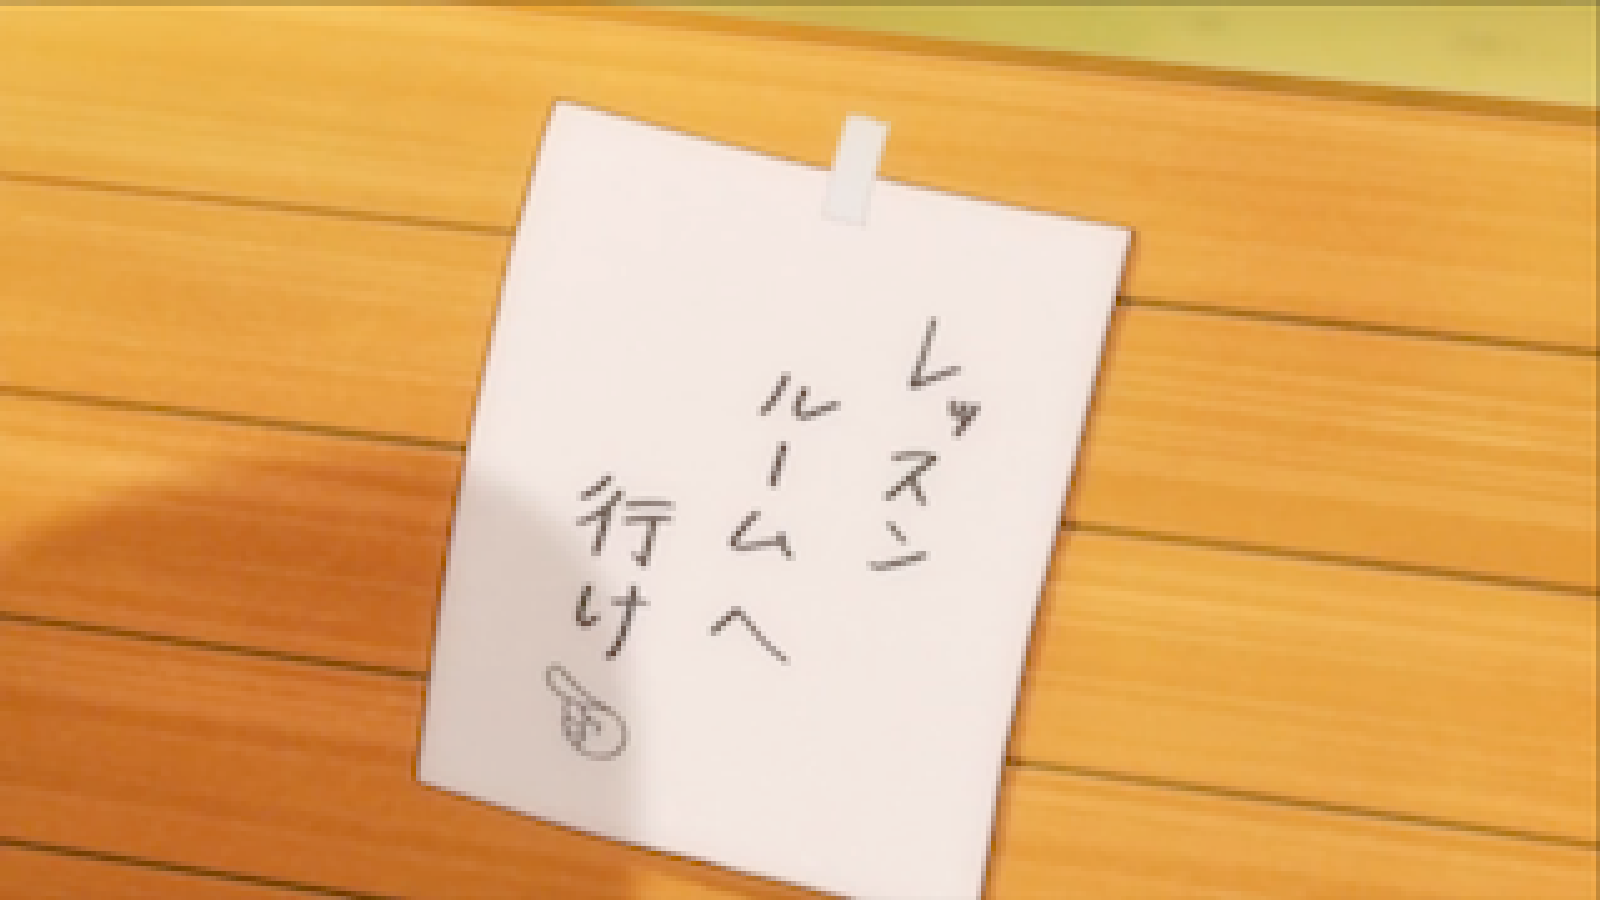 レッスン
ルームへ
行け